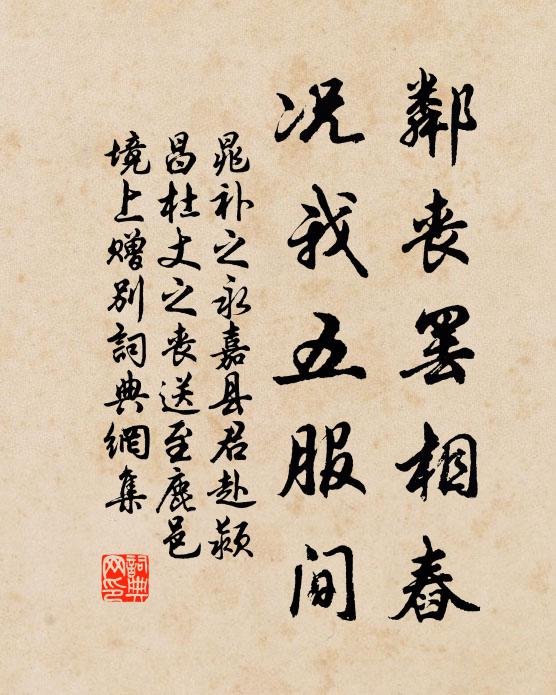 鄰喪罢相舂
况我五服间
晁补之永嘉县君赴颍
昌杜丈之喪送至鹿邑
境上赠别詞典網集
詞典网印